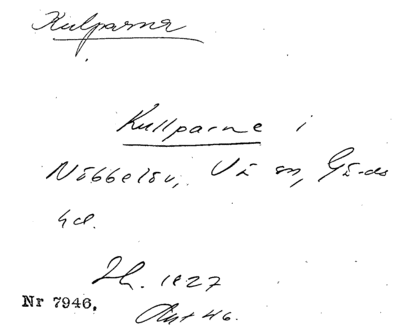 Kulparna
Kullparne i
Nöbbelöv, Vä sn, Gärds
hd.
Lh. 1827
Nr 7946.
Akt 46.